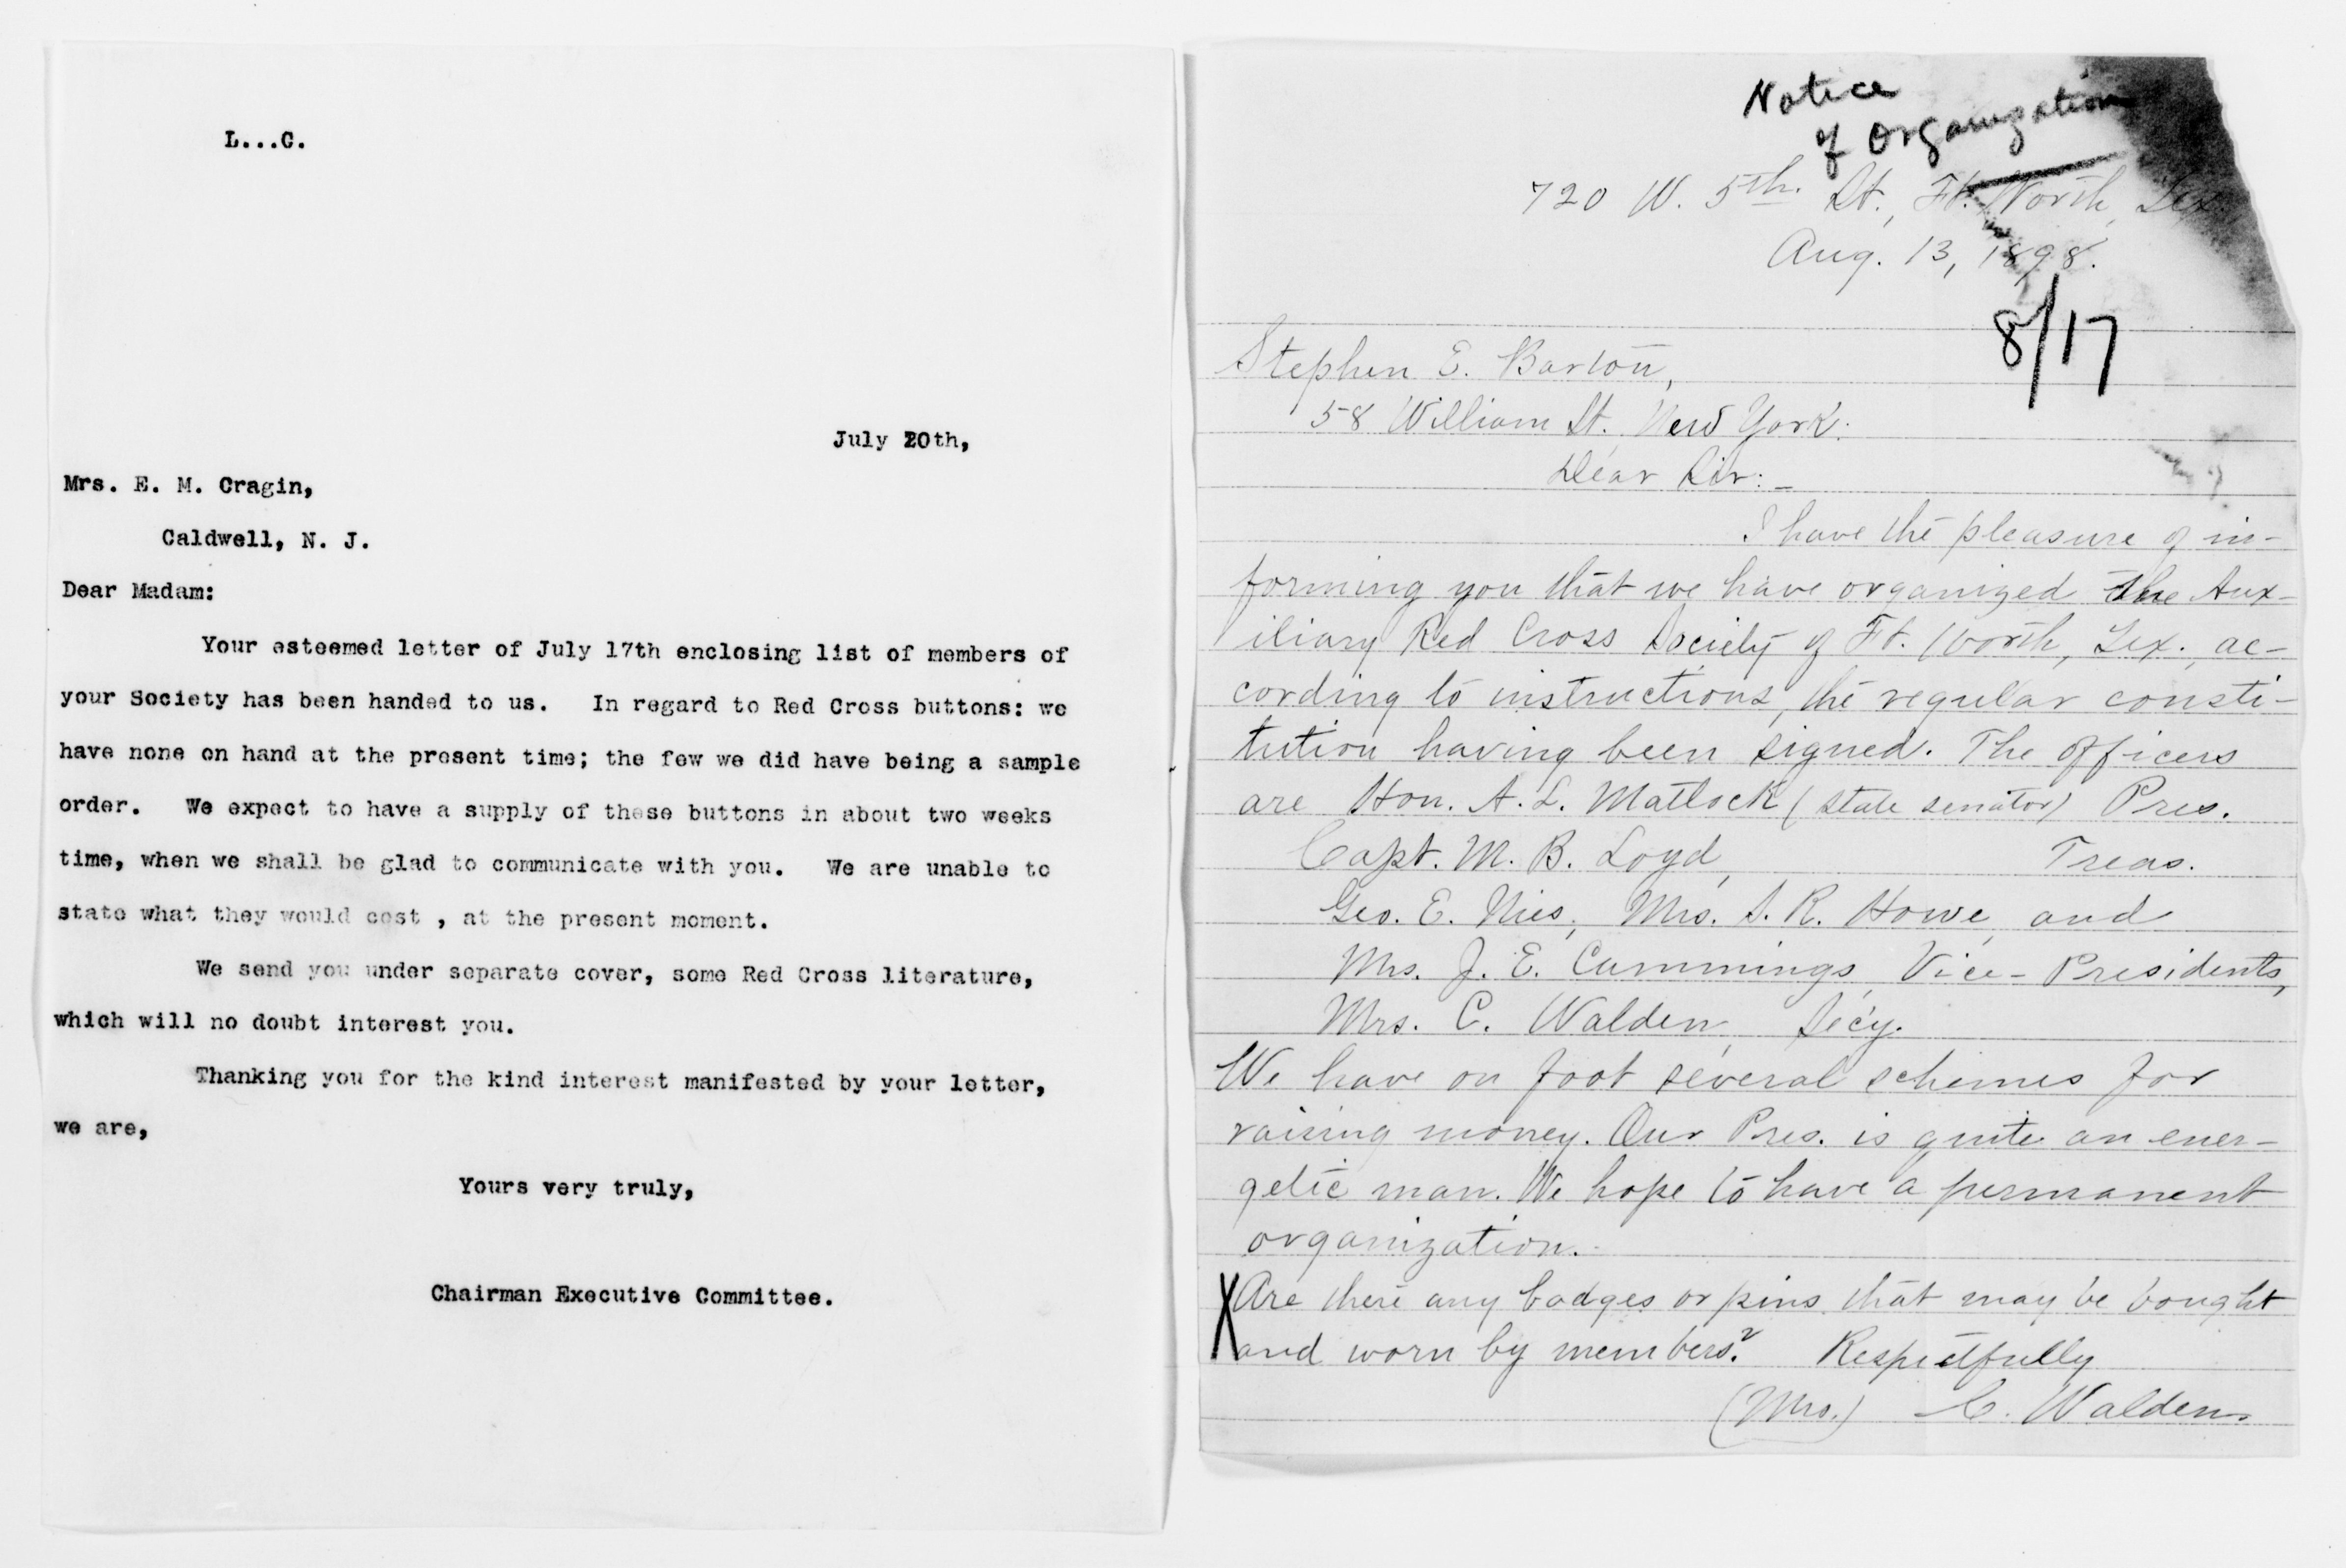 L...C.
July 20th,
Mrs. E. M. Cragin,
Caldwell, N. J.
Dear Madam:
Your esteemed letter of July 17th enclosing list of members of
your Society has been handed to us. In regard to Red Cross buttons: we
have none on hand at the present time; the few we did have being a sample
order. We expect to have a supply of these buttons in about two weeks
time, when we shall be glad to communicate with you. We are unable to
state what they would cost , at the present moment.
We send you under separate cover, some Red Cross literature,
which will no doubt interest you.
Thanking you for the kind interest manifested by your letter,
we are,
Yours very truly,
Chairman Executive Committee.
Notice
of Organization
720 W. 5th. St., Ft. Worth, Tex.
Aug. 13, 1898.
8/17
Stephen E. Barton,
58 William St. New York.
Dear Sir:-
I have the pleasure of in-
forming you that we have organized the Aux-
iliary Red Cross Society of Ft. Worth, Tex., ac-
cording to instructions, the regular consti-
tution having been signed. The officers
are Hon. A. L. Matlock (state senator) Pres.
Capt. M. B. Loyd, Treas.
Geo. E. Nies, Mrs. S. R. Howe, and
Mrs. J. E. Cummings, Vice-Presidents,
Mrs. C. Walden, Sec'y.
We have on foot several schemes for
raising money. Our Pres. is quite an ener-
getic man. We hope to have a permanent
organization.
X Are there any badges or pins that may be bought
and worn by members? Respectfully
(Mrs.) C. Walden.